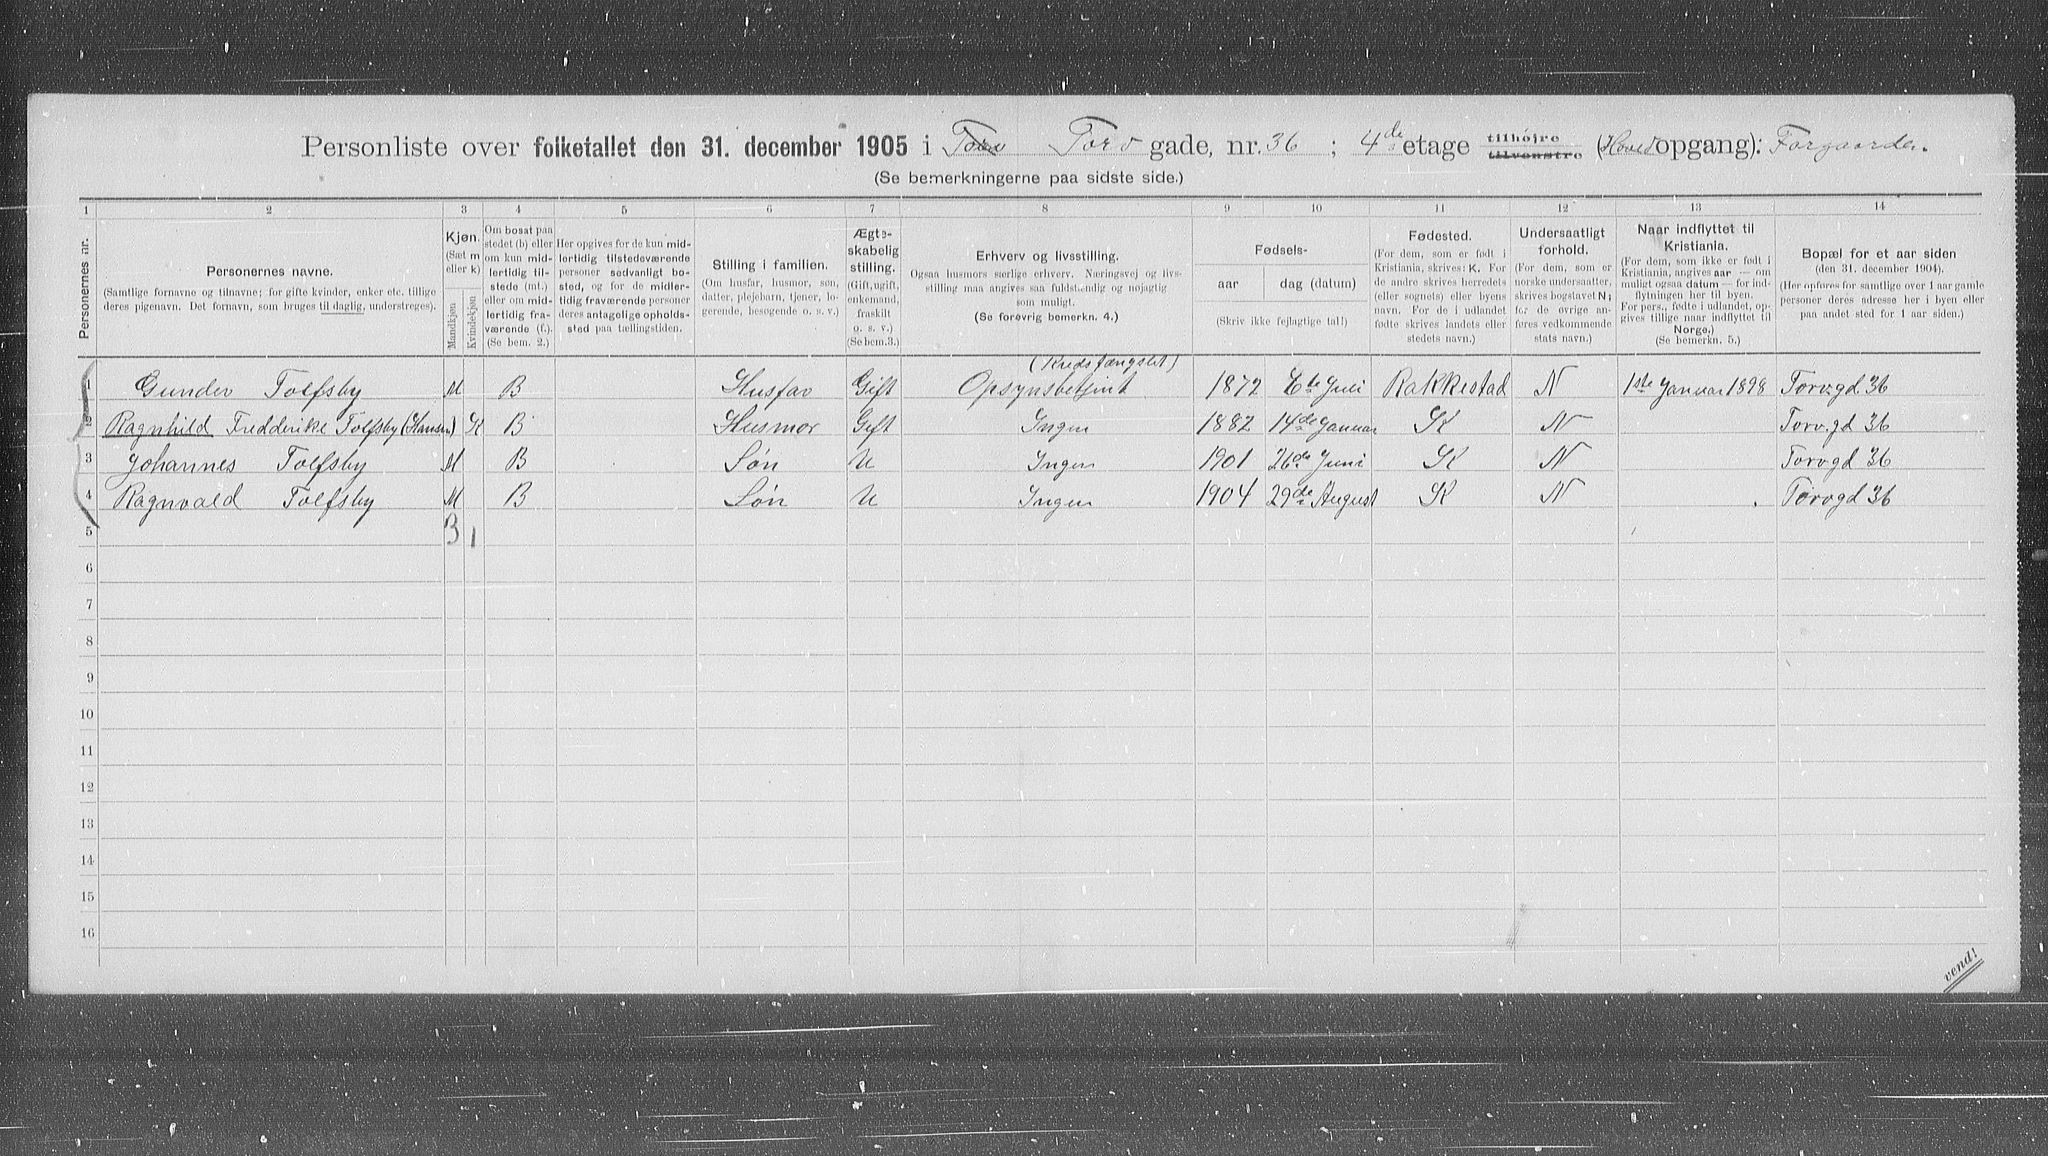 Personliste over folketallet den 31. december 1905 i Torv Torv gade, nr. 36 ; 4de etage tilhøjre tilvenstre (Hoved opgang): Forgaarden.
(Se bemerkningerne paa sidste side.)
1 2 3 4 5 6 7 8 9 10 11 12 13 14
Personernes nr.
Personernes navne.
(Samtlige fornavne og tilnavne; for gifte kvinder, enker etc. tillige deres pigenavn. Det fornavn, som bruges til daglig, understreges).
Kjøn.
(Sæt m eller k)
Mandkjøn
Kvindekjøn
Om bosat paa stedet (b) eller om kun midlertidig tilstede (mt.) eller om midlertidig fraværende (f.).
(Se bem. 2.)
Her opgives for de kun midlertidig tilstedeværende personer sedvanligt bosted, og for de midlertidig fraværende personer deres antagelige opholdssted paa tællingstiden.
Stilling i familien.
(Om husfar, husmor, søn, datter, plejebarn, tjener, logerende, besøgende o. s. v.)
Ægteskabelig stilling.
(Gift, ugift, enkemand, fraskilt o. s. v.)
(Se bem.3.)
Erhverv og livsstilling.
Ogsaa husmors særlige erhverv. Næringsvej og livsstilling maa angives saa fuldstændig og nøjagtig som muligt.
(Se forøvrig bemerkn. 4.)
Fødsels-
aar dag (datum)
(Skriv ikke fejlagtige tal!)
Fødested.
(For dem, som er født i Kristiania, skrives: K. For de andre skrives herredets (eller sognets) eller byens navn. For de i udlandet fødte skrives landets eller stedets navn.)
Undersaatligt forhold.
(For dem, som er norske undersaatter, skrives bogstavet N; for de øvrige anføres vedkommende stats navn.)
Naar indflyttet til Kristiania.
(For dem, som ikke er født i Kristiania, angives aar — om muligt ogsaa datum — for indflytningen her til byen. For pers., fødte i udlandet, opgives tillige naar indflyttet til Norge.)
(Se bemerkn. 5.)
Bopæl for et aar siden
(den 31. december 1904).
(Her opføres for samtlige over 1 aar gamle personer deres adresse her i byen eller paa andet sted for 1 aar siden.)
(Kredsfængslet)
1 Gunder Tolfsby M B Husfar Gift Opsynsbetjent 1872 6te Juli Rakkestad N 1ste Januar 1898 Torvgd 36
2 Ragnhild Fredderike Tolfsby (Hansen) K B Husmor Gift Ingen 1882 14de Januar K N Torv.gd 36
3 Johannes Tolfsby M B Søn U Ingen 1901 26de Juni K N Torvgd 36
4 Ragnvald Tolfsby M B Søn U Ingen 1904 29de August K N Torvgd 36
5 3 1
6
7
8
9
10
11
12
13
14
15
16
vend!